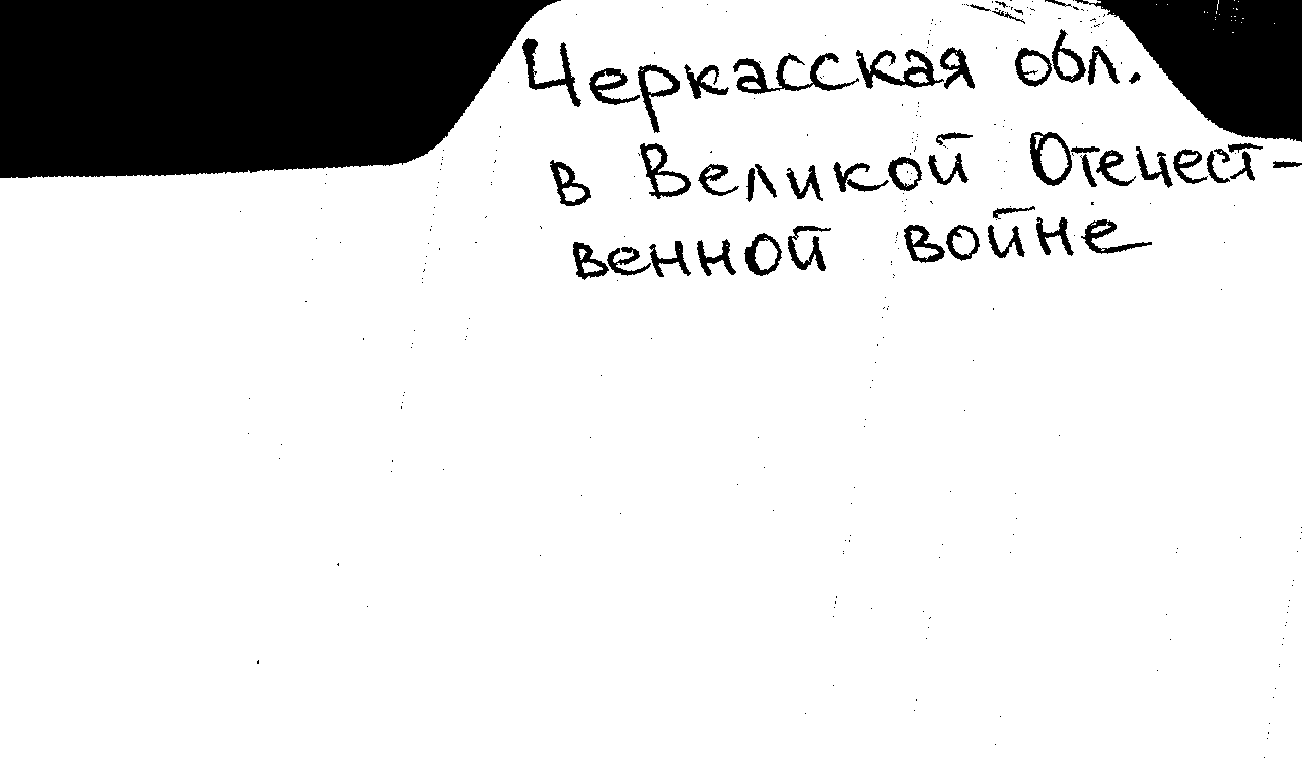 Черкасская обл.
в Великой Отечест-
венной войне